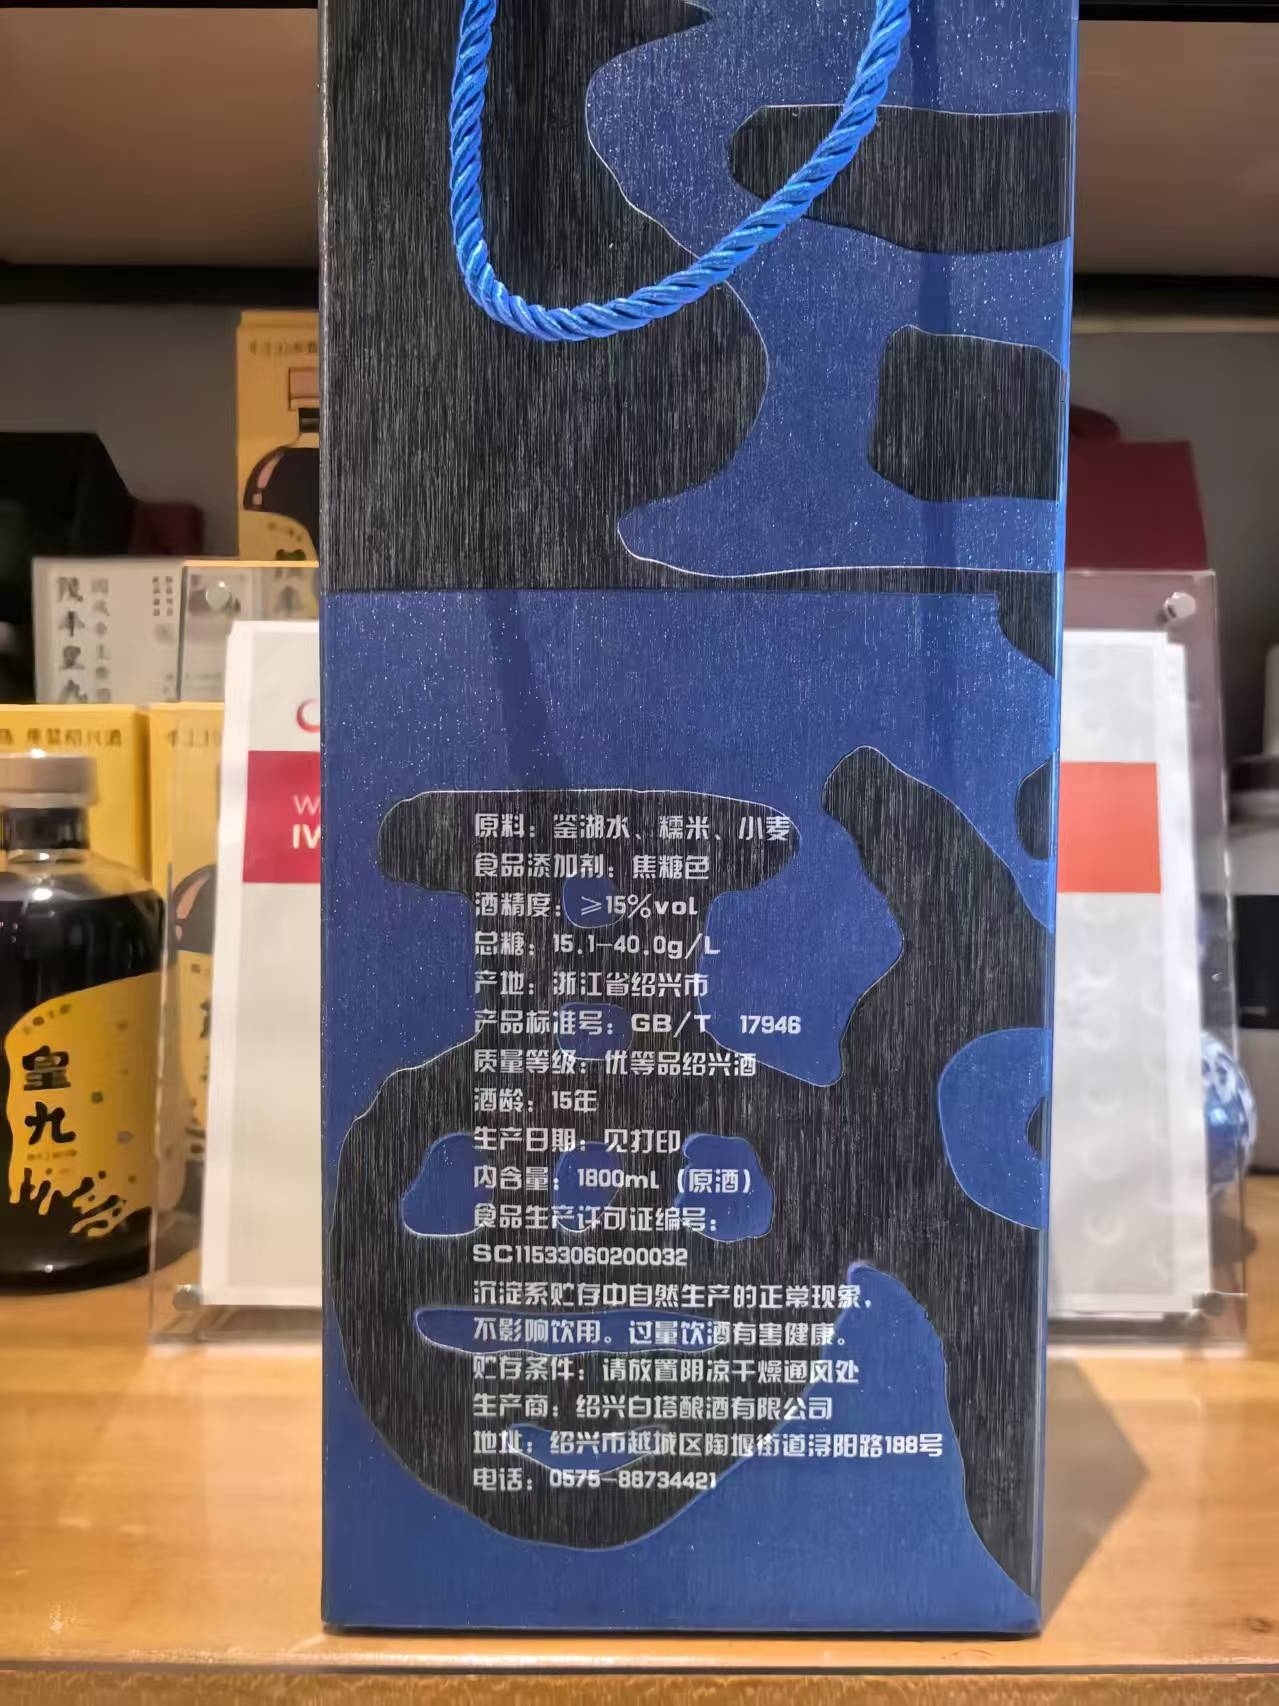 原料：鉴湖水、糯米、小麦
食品添加剂：焦糖色
酒精度：≥15%vol
总糖：15.1-40.0g/L
产地：浙江省绍兴市
产品标准号：GB/T 17946
质量等级：优等品绍兴酒
酒龄：15年
生产日期：见打印
内含量：1800mL（原酒）
食品生产许可证编号：
SC11533060200032
沉淀系贮存中自然生产的正常现象，
不影响饮用。过量饮酒有害健康。
贮存条件：请放置阴凉干燥通风处
生产商：绍兴白塔酿酒有限公司
地址：绍兴市越城区陶堰街道浔阳路188号
电话：0575-88734421
皇
九